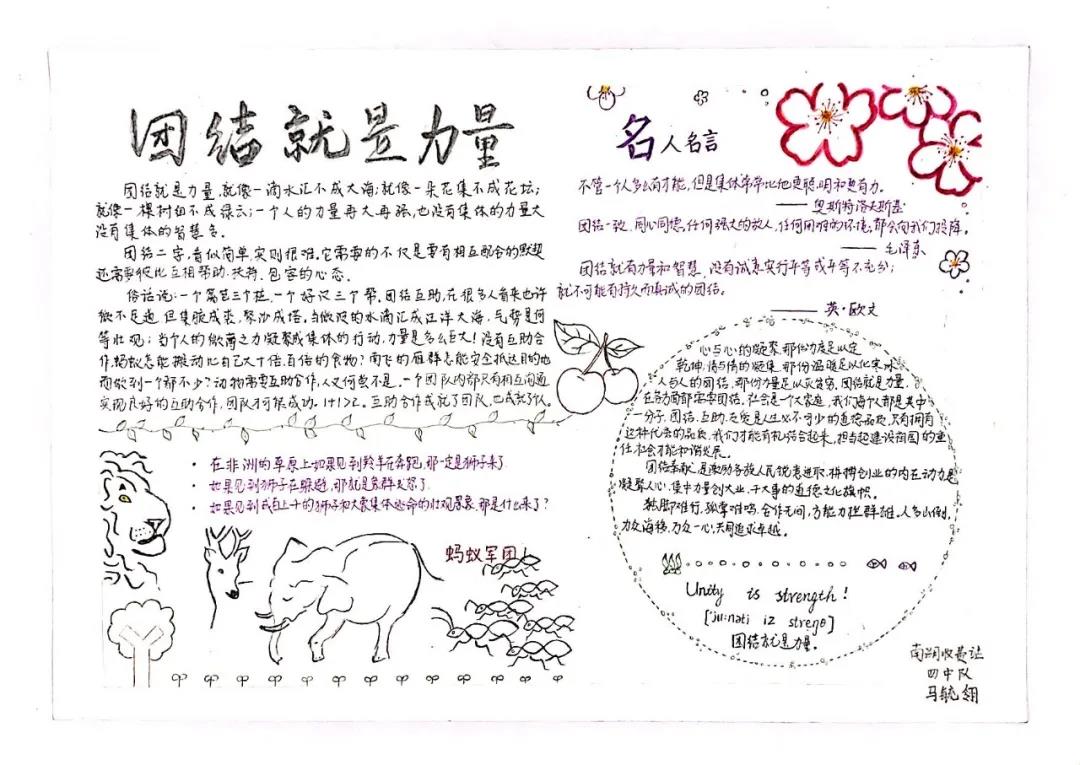 团结就是力量
团结就是力量,就像一滴水汇不成大海;就像一朵花集不成花坛;
就像一棵树组不成绿云;一个人的力量再大再强,也没有集体的力量大
没有集体的智慧多。
团结二字,看似简单,实则很难。它需要的不仅是要有相互配合的默契
还需要彼此互相帮助、扶持、包容的心态。
俗话说:一个篱笆三个桩,一个好汉三个帮。团结互助,在很多人看来也许
微不足道,但集腋成裘,聚沙成塔。当微没的水滴汇成江洋大海,气势是何
等壮观;当个人的微薄之力凝聚成集体的行动,力量是多么巨大!没有互助合
作,蚂蚁怎能搬动比自己大十倍、百倍的食物?南飞的雁群怎能安全抵达目的地
而做到一个都不少?动物需要互助合作,人又何尝不是,一个团队内部只有相互沟通
实现良好的互助合作,团队才可能成功。1+1>2。互助合作成就了团队,也成就了队
名人名言
不管一个人多么有才能,但是集体常常比他更聪明和更有力。
——奥斯特洛夫斯基
团结一致,同心同德,任何强大的敌人,任何困难的环境,都会向我们投降。
——毛泽东
团结就有力量和智慧,没有诚意实行平等或平等不充分,
就不可能有持久而真诚的团结。
——英·欧文
• 在非洲的草原上如果见到羚羊在奔跑,那一定是狮子来了
• 如果见到狮子在躲避,那就是象群发怒了
• 如果见到成百上千的狮子和大象集体逃命的壮观景象,那是什么来了?
蚂蚁军团
心与心的凝聚,那份力度足以定
乾坤,情与情的凝集,那份温暖足以化寒冰
人与人的团结,那份力量足以灭贫穷。团结就是力量,
在各方面都需要团结。社会是一个大家庭,我们每个人都是其中
一分子,团结、互助、友爱是人生必不可少的道德品质,只有拥有
这种优秀的品质,我们才能有机结合起来,担当起建设祖国的重
任,社会才能和谐发展。
团结奉献,是激励各族人民锐意进取、拼搏创业的内在动力是
凝聚人心、集中力量创大业、干大事的道德文化旗帜。
独脚难行,孤掌难鸣,合作无间,方能力挫群雄。人多山倒,
力众海移,万众一心,共同追求卓越。
Unity is strength!
['ju:nəti iz streŋθ]
团结就是力量。
南湖收费站
四中队
马毓翎